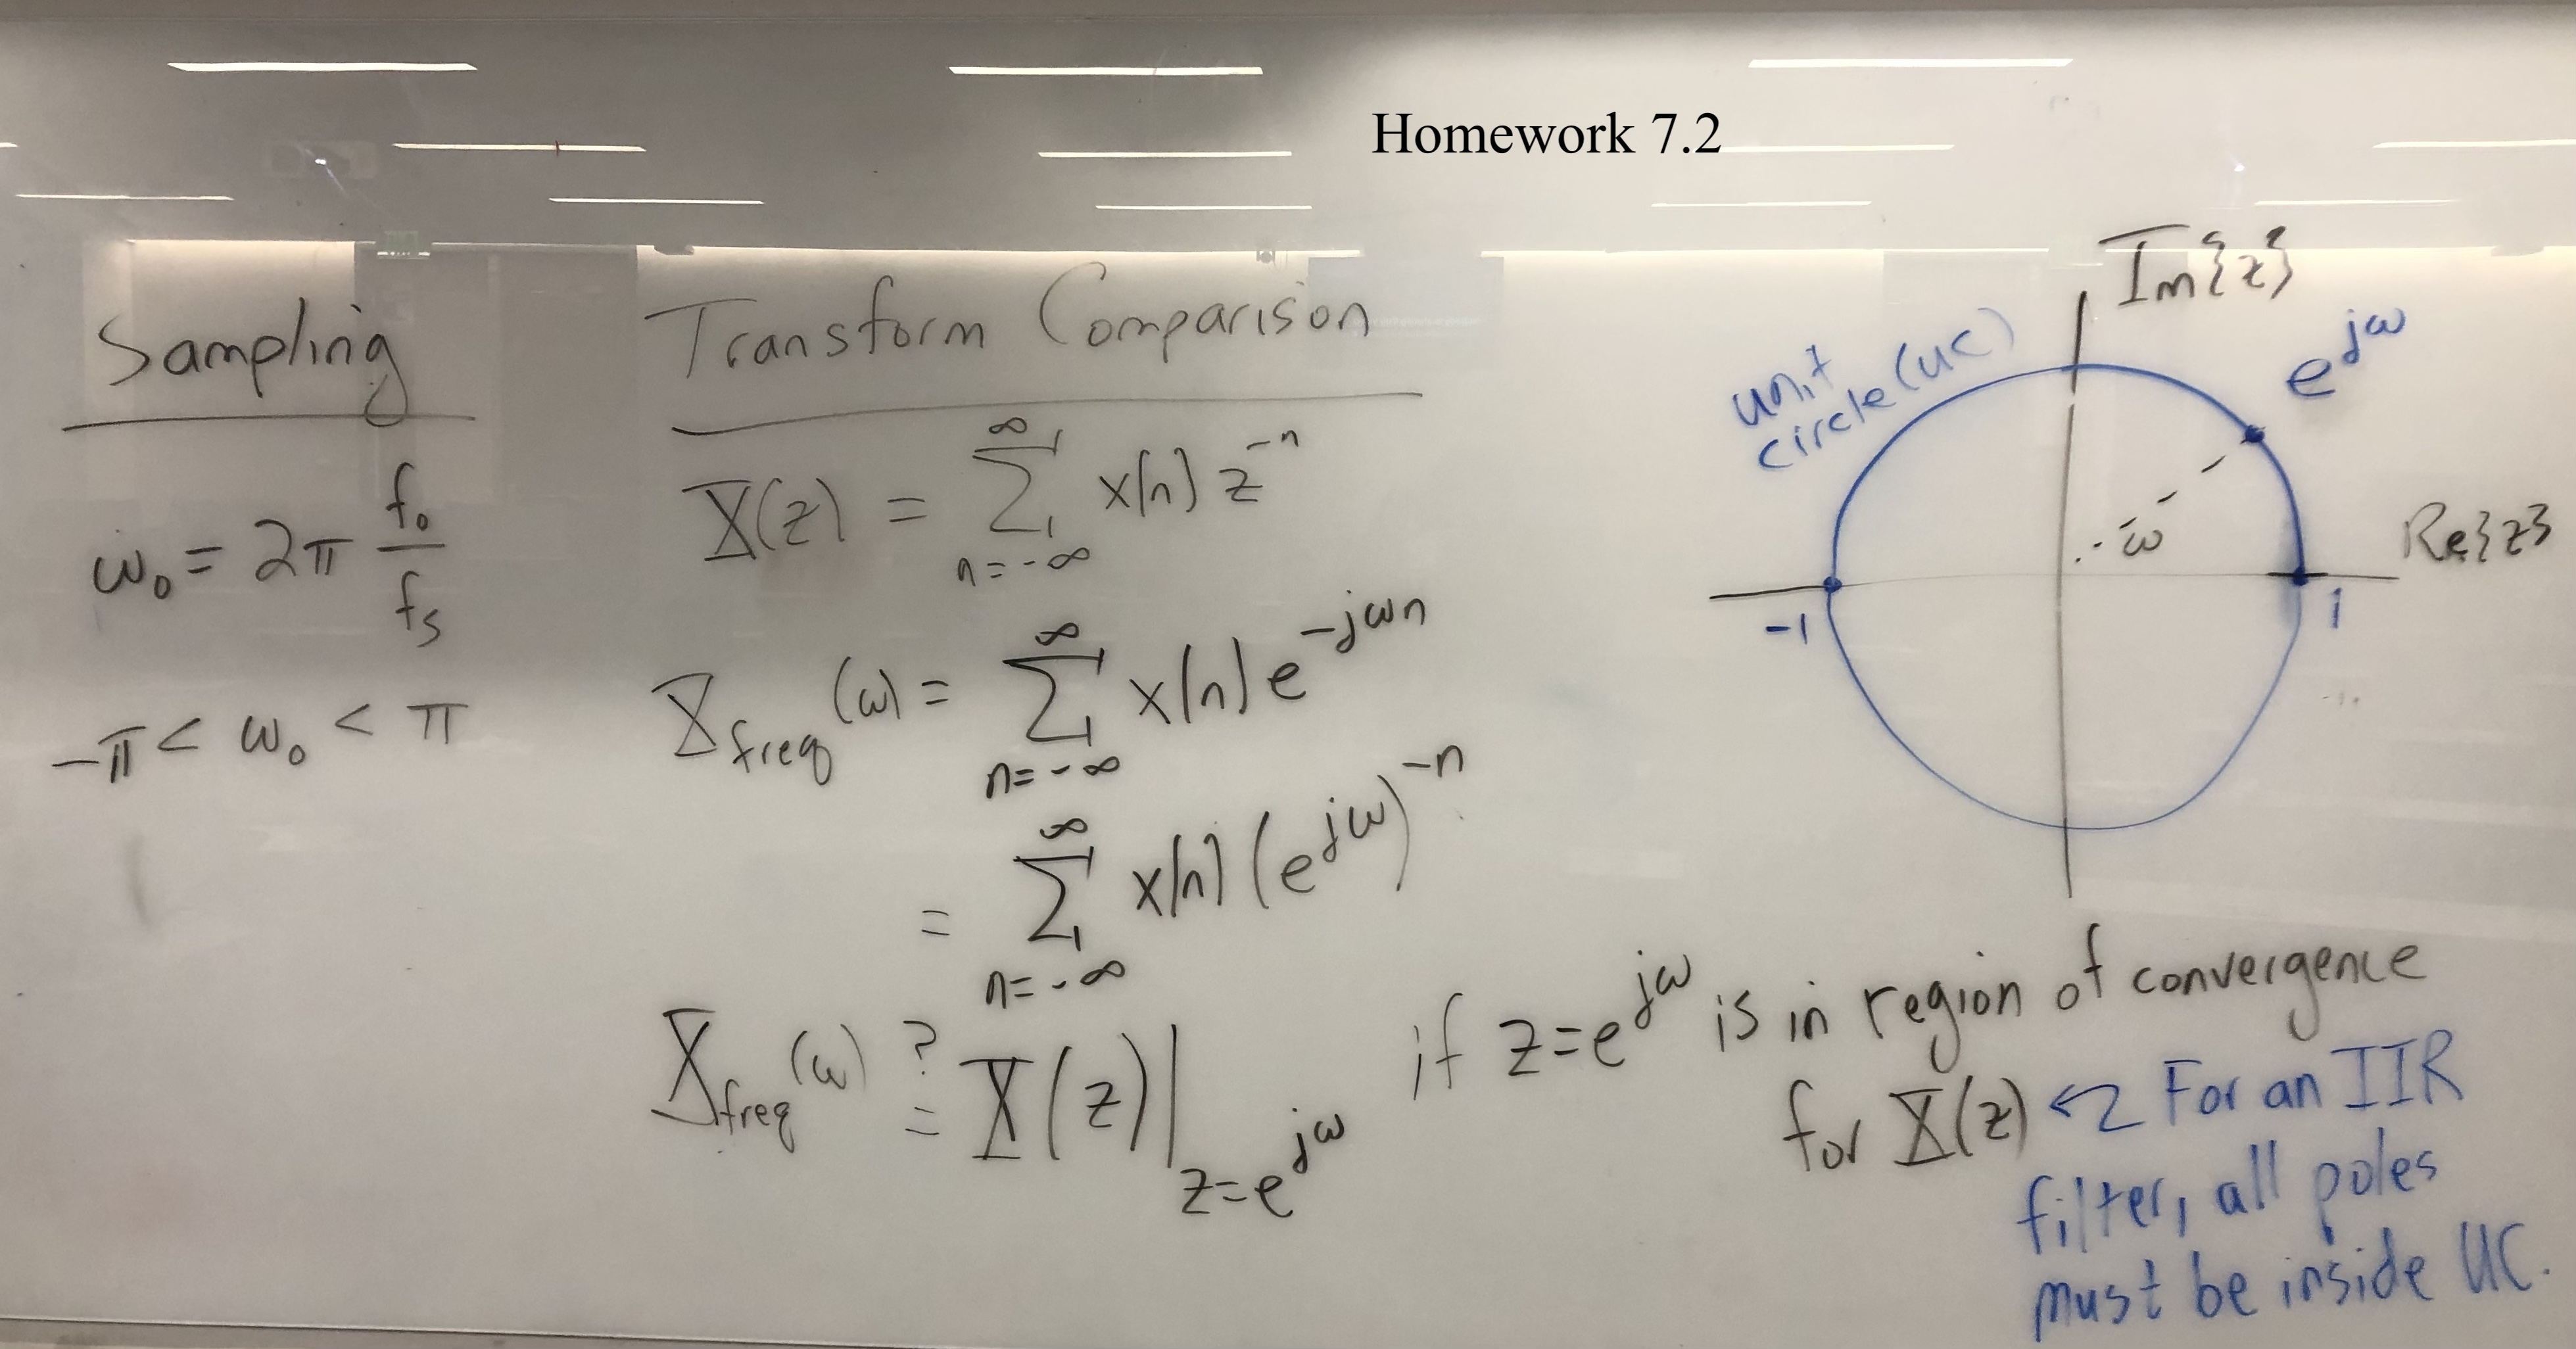 Homework 7.2
Sampling
ω₀ = 2π f₀/fₛ
-π < ω₀ < π
Transform Comparison
X(z) = ∑_{n=-∞}^{∞} x[n] z^{-n}
X_freq(ω) = ∑_{n=-∞}^{∞} x[n] e^{-jωn}
= ∑_{n=-∞}^{∞} x[n] (e^{jω})^{-n}
X_freq(ω) ?= X(z)|_{z=e^{jω}} if z=e^{jω} is in region of convergence
for X(z) ← For an IIR
filter, all poles
must be inside UC.
Im{z}
unit
circle (UC)
e^{jω}
ω
Re{z}
-1
1